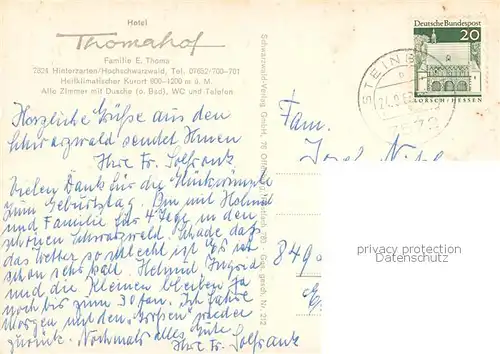 Hotel
Thomahof
Familie E. Thoma
7824 Hinterzarten/Hochschwarzwald, Tel. 07652-700-701
Heilklimatischer Kurort 800-1200 m ü. M.
Alle Zimmer mit Dusche (o. Bad), WC und Telefon
Herzliche Grüße aus dem
Schwarzwald sendet Ihnen
Ihre Fr. Solfrank
Vielen Dank für die Glückwünsche
zum Geburtstag. Bin mit Helmut
und Familie für 4 Tage in dem
schönen Schwarzwald. Schade daß
das Wetter so schlecht ist. Es ist
schon sehr kalt. Helmut Ingrid
und die Kleinen bleiben ja
noch bis zum 30 ten. Ich fahre
Morgen mit den "Großen" wieder
zurück. Nochmals alles Gute
Ihre Fr. Solfrank
Schwarzwald-Verlag GmbH, 76 Offenburg
Ges. gesch. Nr. 212
Deutsche Bundespost
20
LORSCH/HESSEN
STEIN
Fam.
849
privacy protection
Datenschutz